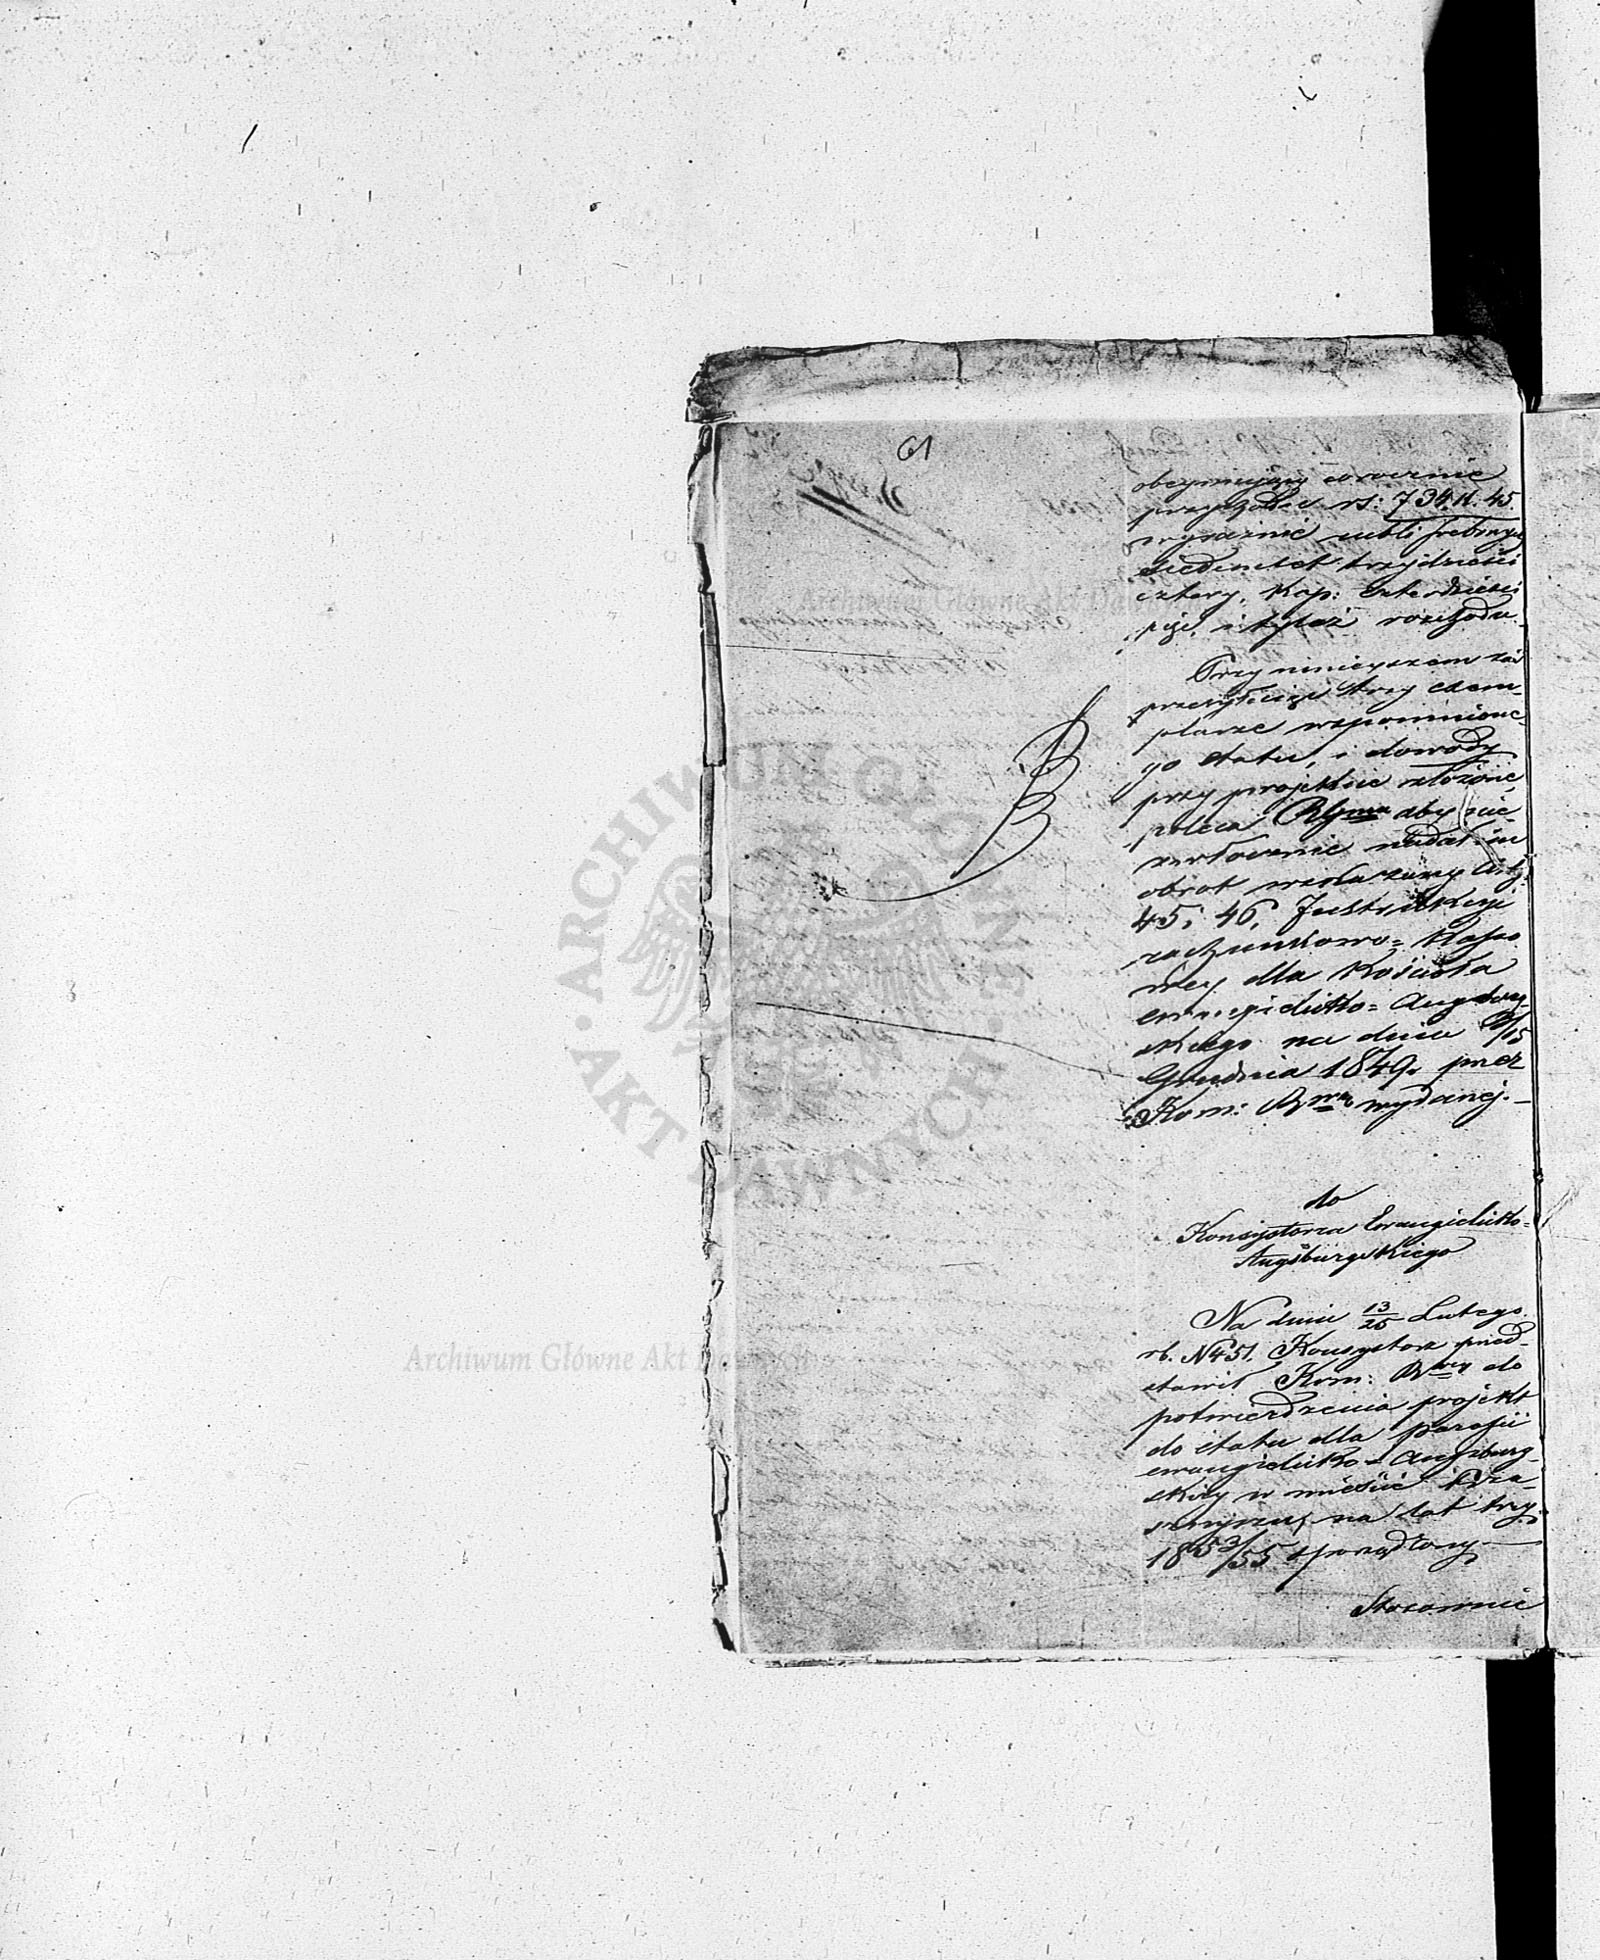 61
obeymujący corocznie
przychodu rs: 734. k. 45.
wyraźnie rubli srebrnych
siedmset trzydzieści
cztery, kop: czterdzieści
pięć, i tyleż rozchodu.
Przy niniejszem zaś
przesyłając trzy exem-
plarze wspomnione-
go etatu, i dowody
przy projekcie złożone,
poleca aby nie-
zwłocznie nadał im
obrot wskazany Art:
45, i 46, Instrukcyi
rachunkowo= Kasso
wey dla Kościoła
ewangielicko= Augsbur-
skiego na dniu 3/15
Grudnia 1849 r. przez
Kom: Rwą wydanej.—
do
Konsystorza Ewangielicko=
Augsburgskiego
Na dniu 13/25 Lutego
rb. N 451. Konsystorz przed-
stawił Kom: Rwey do
potwierdzenia projekt
do etatu dla parafii
ewangielicko = Augsburg-
skiey w mieście Prza-
snyszu, na lat trzy
1853/55 sporządzony.—
Stosownie
Archiwum Główne Akt Dawnych
Archiwum Główne Akt Dawnych
ARCHIWUM GŁÓWNE AKT DAWNYCH